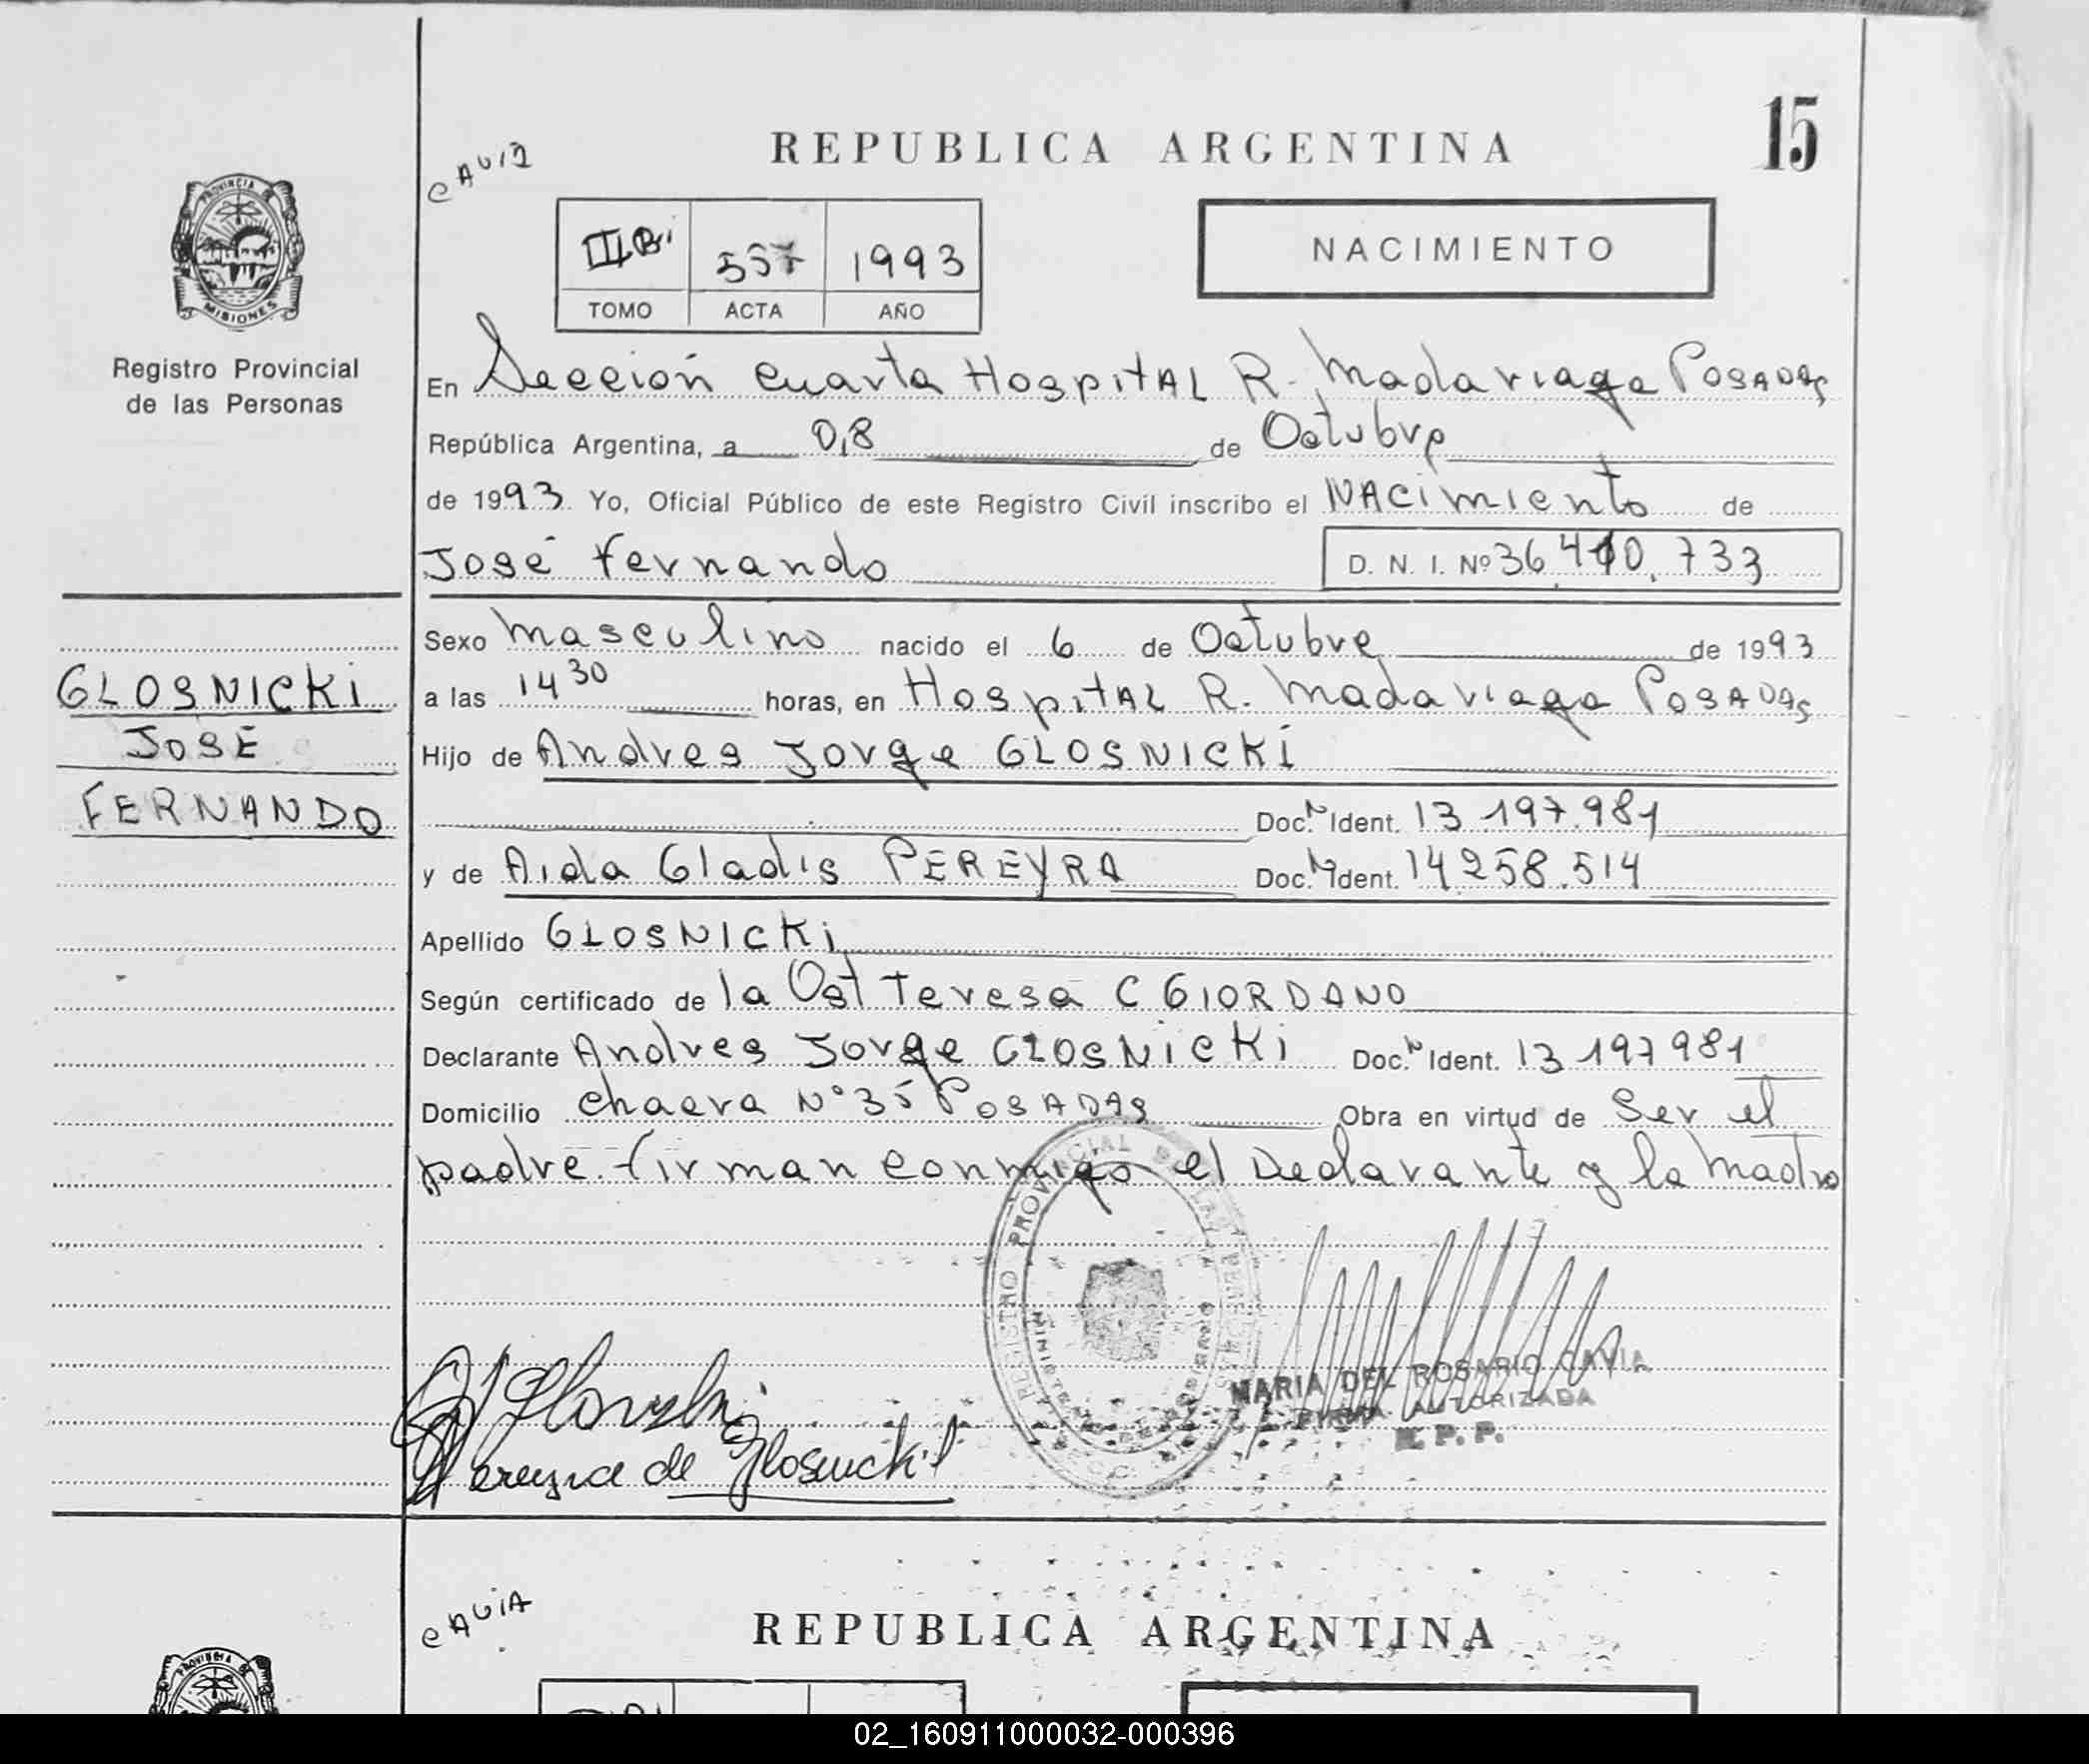 15
CAVIA
REPUBLICA ARGENTINA
PROVINCIA DE
MISIONES
Registro Provincial
de las Personas
557 1993
TOMO ACTA AÑO
NACIMIENTO
En Sección Cuarta Hospital R. Madariaga Posadas
República Argentina, a 08 de Octubre
de 1993 Yo, Oficial Público de este Registro Civil inscribo el Nacimiento de
José Fernando D. N. I. Nº 36.410.733
Sexo Masculino nacido el 6 de Octubre de 1993
a las 14 30 horas, en Hospital R. Madariaga Posadas
Hijo de Andres Jorge GLOSNICKI
Doc. Ident. 13.197.981
y de Aida Gladis PEREYRA Doc. Ident. 14.258.514
Apellido GLOSNICKI
Según certificado de la Ost Teresa C GIORDANO
Declarante Andres Jorge GLOSNICKI Doc. Ident. 13 197 981
Domicilio Chacra Nº 35 Posadas Obra en virtud de Ser el
padre. firman conmigo el Declarante y la Madre
GLOSNICKI
JOSÉ
FERNANDO
REGISTRO PROVINCIAL DE LAS PERSONAS
MARIA DEL ROSARIO CAVIA
FIRMA AUTORIZADA
R. P. P.
Pereyra de Glosnicki
CAVIA
REPUBLICA ARGENTINA
PROVINCIA DE
02_160911000032-000396